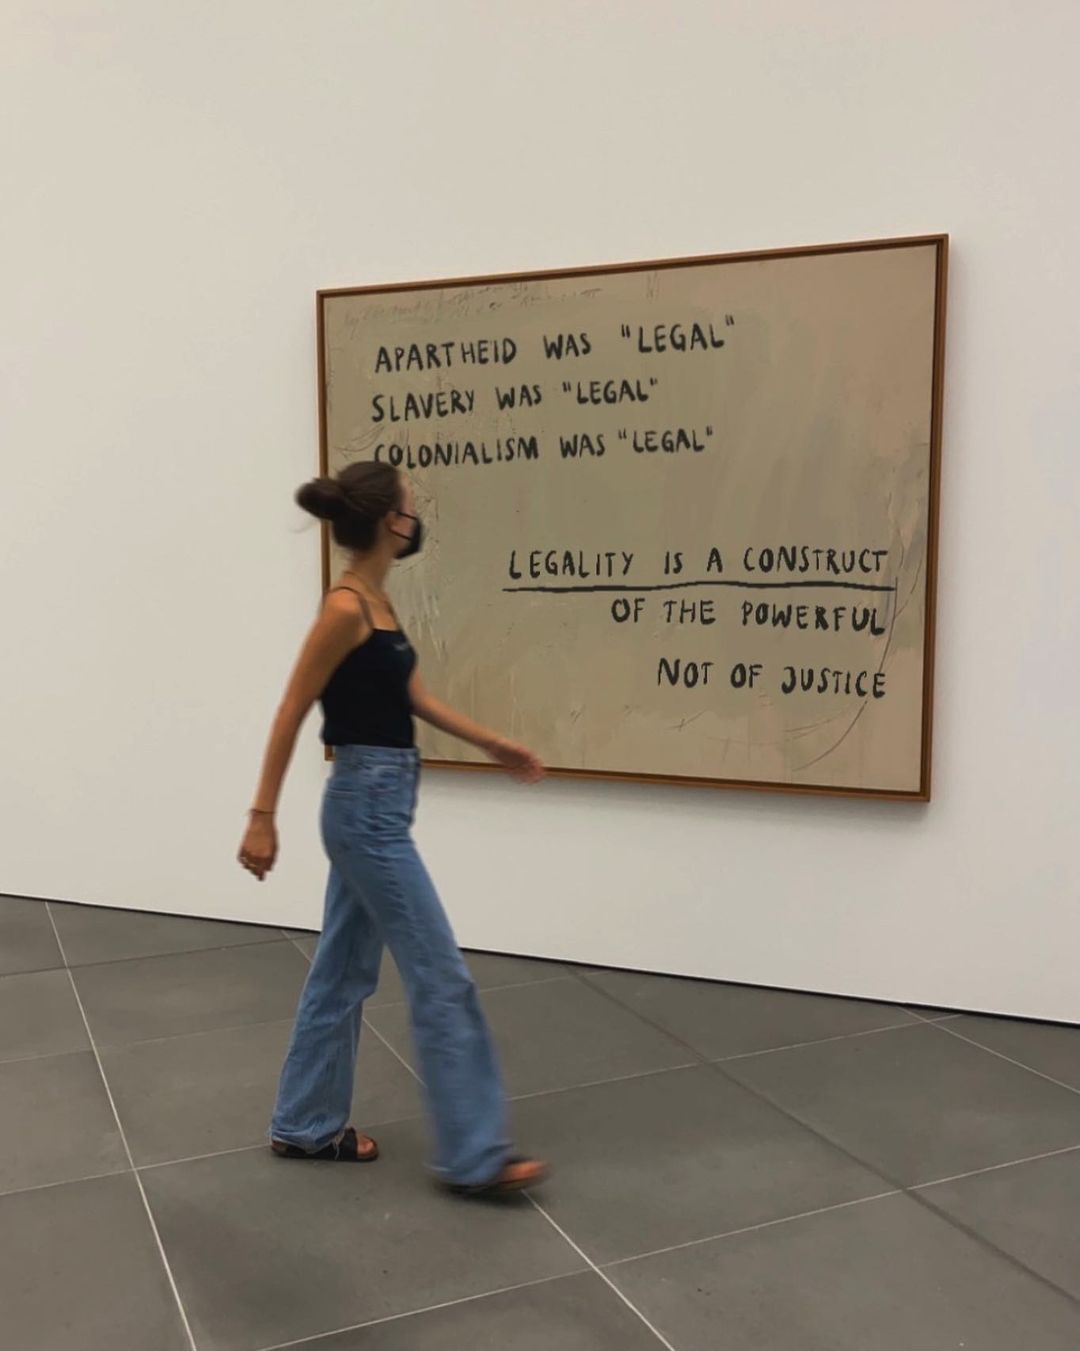 APARTHEID WAS "LEGAL"
SLAVERY WAS "LEGAL"
COLONIALISM WAS "LEGAL"
LEGALITY IS A CONSTRUCT
OF THE POWERFUL
NOT OF JUSTICE